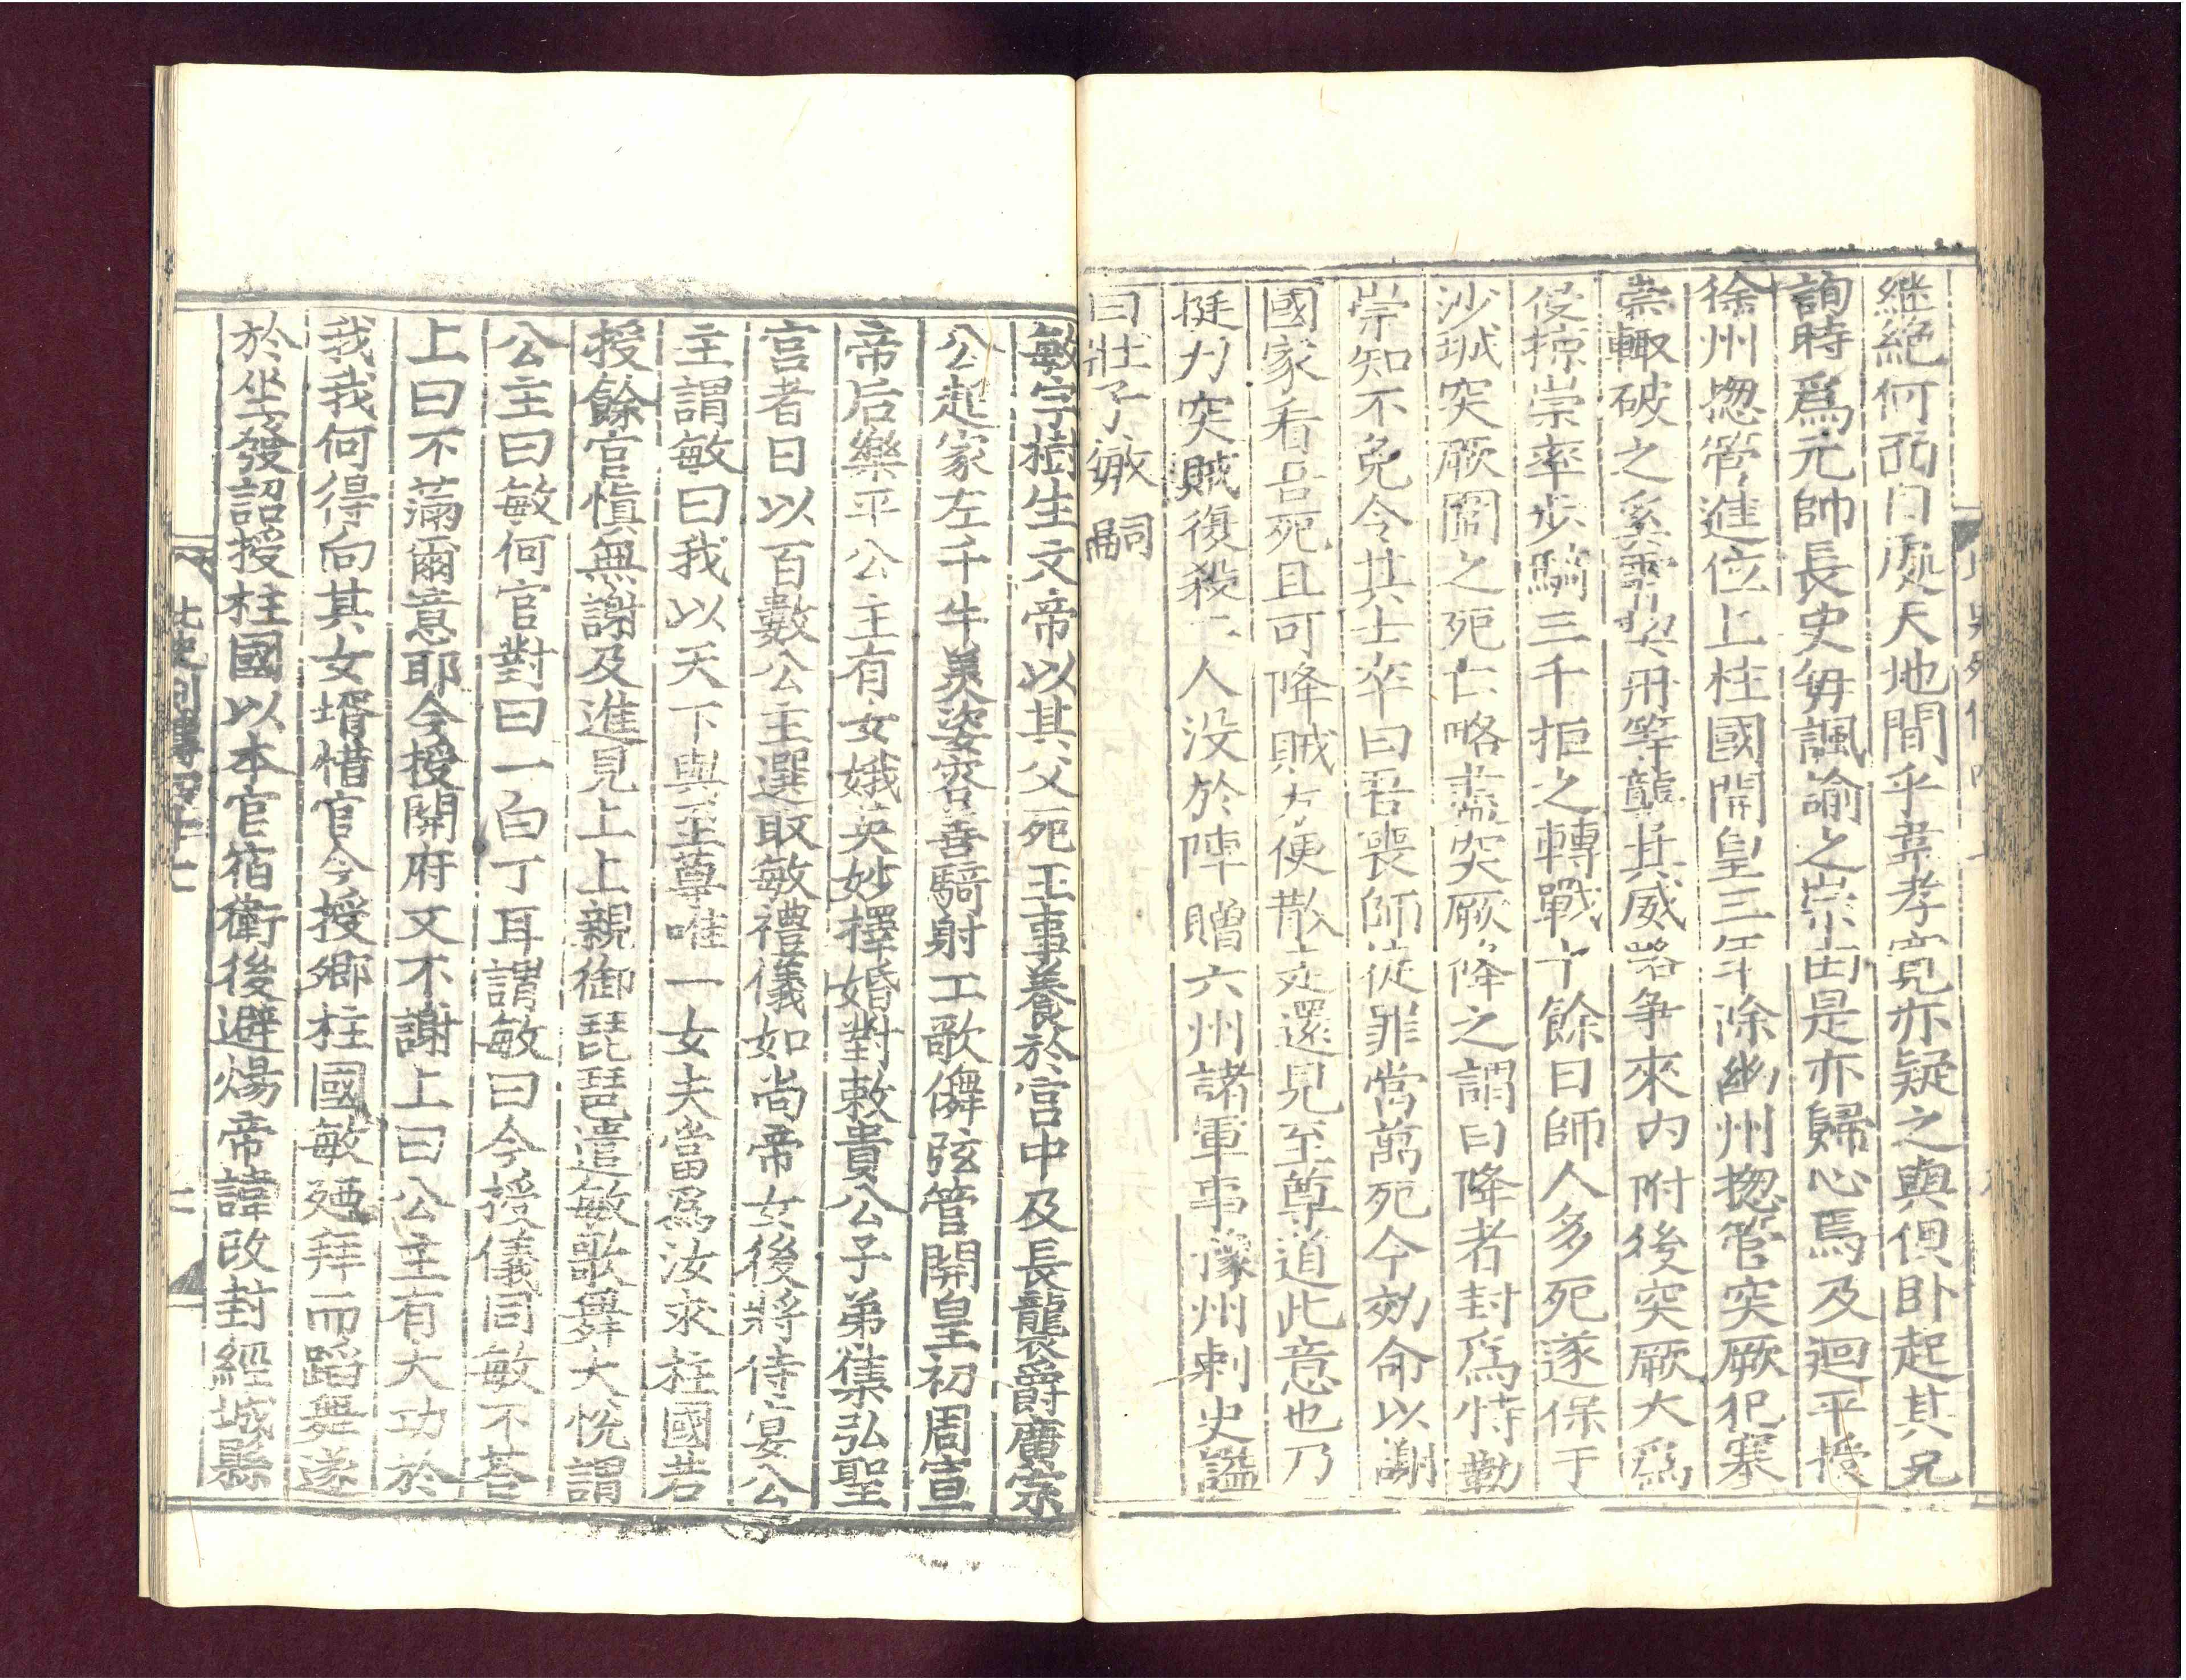 継絶何面目處天地間乎韋孝寛亦疑之與俱卧起其兄
詢時爲元帥長史毎諷諭之崇由是亦歸心焉及迴平授
徐州揔管進位上柱國開皇三年除幽州揔管突厥犯塞
崇輙破之奚霫契丹等讋其威略争來内附後突厥大爲
侵掠崇率步騎三千拒之轉戰十餘日師人多死遂保于
沙城突厥圍之死亡略盡突厥降之謂曰降者封爲特勤
崇知不免令其士卒曰吾喪師徒罪當萬死今効命以謝
國家看吾死且可降賊方便散走還見至尊道此意也乃
挺刀突賊復殺二人没於陣贈六州諸軍事豫州刺史謚
曰壯子敏嗣
敏字樹生文帝以其父死王事養於宫中及長襲爵廣宗
公起家左千牛美姿容善騎射工歌儛弦管開皇初周宣
帝后樂平公主有女娥英妙擇婚對敕貴公子弟集弘聖
宫者日以百數公主選取敏禮儀如尚帝女後將侍宴公
主謂敏曰我以天下與至尊唯一女夫當爲汝求柱國若
授餘官慎無謝及進見上上親御琵琶遣敏歌舞大悦謂
公主曰敏何官對曰一白丁耳謂敏曰今授儀同敏不荅
上曰不滿爾意耶今授開府又不謝上曰公主有大功於
我我何得向其女壻惜官今授卿柱國敏廼拜而蹈舞遂
於坐發詔授柱國以本官宿衛後避煬帝諱改封經城縣
北史列傳四十七